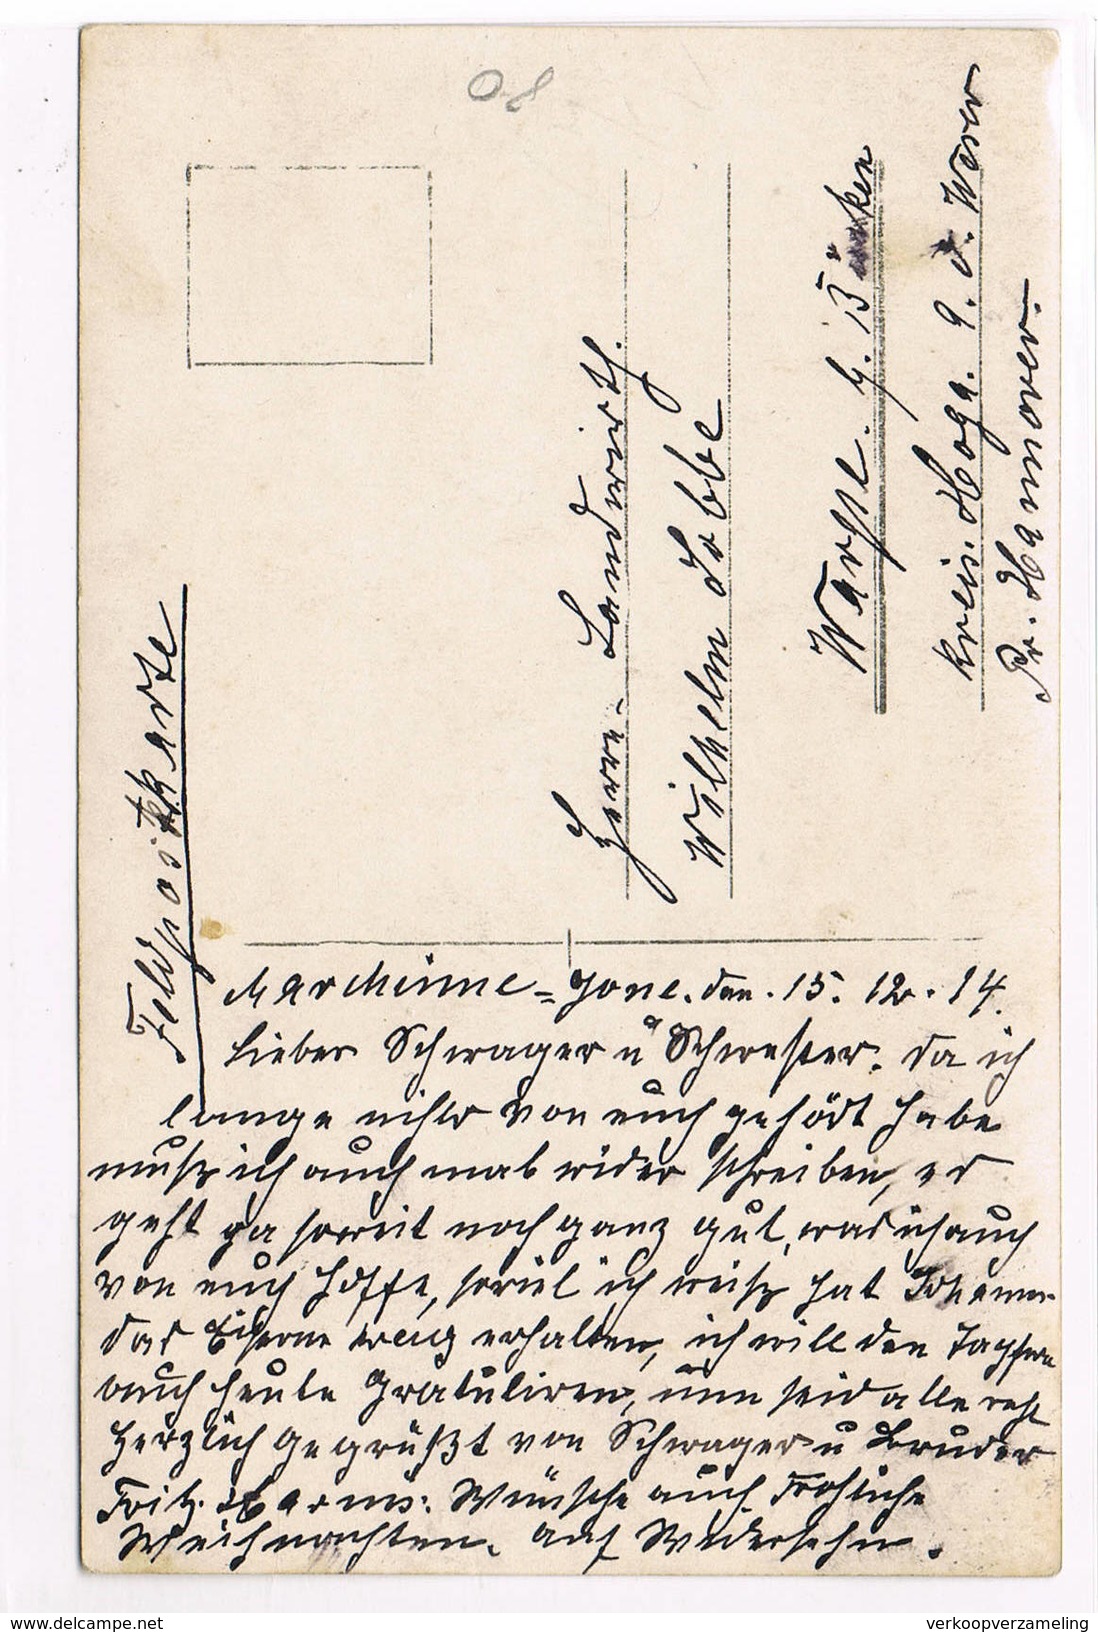 08
Feldpostkarte
Herrn Landwirth.
Wilhelm Lobbe
Warpe. b. Bücken
Kreis. Hoya. a. d. Weser
Pr. Hannover.
Marchienne = Zone. den. 15. 12. 14.
Lieber Schwager u Schwester. da ich
lange nichts von euch gehödt habe
muß ich auch mal wider schreiben, es
geht ja soweit noch ganz gut, was ich auch
von euch hoffe, soviel ich weiß hat Johann
das Eiserne kreuz erhalten, ich will den Tapfern
auch heute Gratuliren, nun seid alle recht
Herzlich gegrüßt von Schwager u Bruder
Fritz. Harms. Wünsche auch Frohliche
Weihnachten. Auf Widersehn.
www.delcampe.net
verkoopverzameling